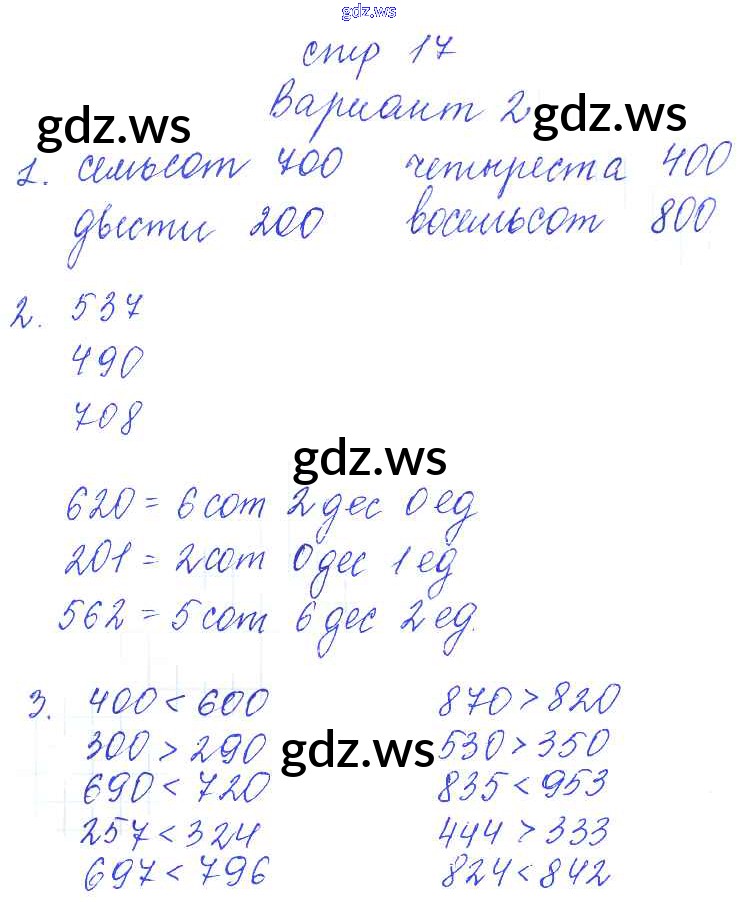 gdz.ws
стр 17
Вариант 2
gdz.ws gdz.ws
1. семьсот 700 четыреста 400
двести 200 восемьсот 800
2. 537
490
708
gdz.ws
620 = 6 сот 2 дес 0 ед
201 = 2 сот 0 дес 1 ед
562 = 5 сот 6 дес 2 ед.
3. 400 < 600 870 > 820
300 > 290 gdz.ws 530 > 350
690 < 720 835 < 953
257 < 324 444 > 333
697 < 796 824 < 842